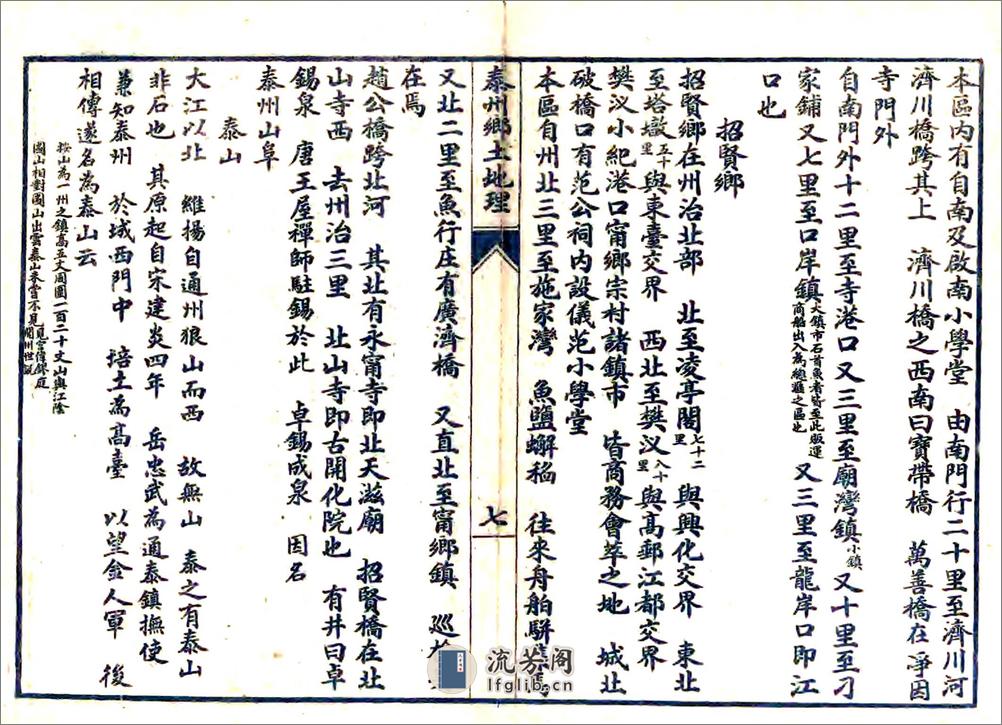 本區內有自南及啟南小學堂　由南門行二十里至濟川河
濟川橋跨其上　濟川橋之西南曰寶帶橋　萬善橋在淨因
寺門外
自南門外十二里至寺港口又三里至廟灣鎮小鎮又十里至刁
家鋪又七里至口岸鎮大鎮市石首魚者皆至此販運商船出入為總匯之區也　又三里至龍岸口即江
口也
招賢鄉
招賢鄉在州治北部　北至凌亭閣七十二里與興化交界　東北
至塔墩五十里與東臺交界　西北至樊汊八十里與高郵江都交界
樊汊小紀港口甯鄉宗村諸鎮市　皆商務會萃之地　城北
破橋口有范公祠內設儀范小學堂
本區自州北三里至施家灣　魚鹽蠏稻　往來舟舶駢焉
泰州鄉土地理
七
又北二里至魚行庄有廣濟橋　又直北至甯鄉鎮　巡
在焉
趙公橋跨北河　其北有永甯寺即北天滋廟　招賢橋在北
山寺西　去州治三里　北山寺即古開化院也　有井曰卓
錫泉　唐王屋禪師駐錫於此　卓錫成泉　因名
泰州山阜
泰山
大江以北　維揚自通州狼山而西　故無山　泰之有泰山
非石也　其原起自宋建炎四年　岳忠武為通泰鎮撫使
兼知泰州　於城西門中　培土為高臺　以望金人軍　後
相傳遂名為泰山云
按山為一州之鎮高五丈周圍一百二十丈山與江陰
圌山相對圌山出雲泰山未嘗不見見宮偉鏐庭聞州世說
流芳阁
lfglib.cn